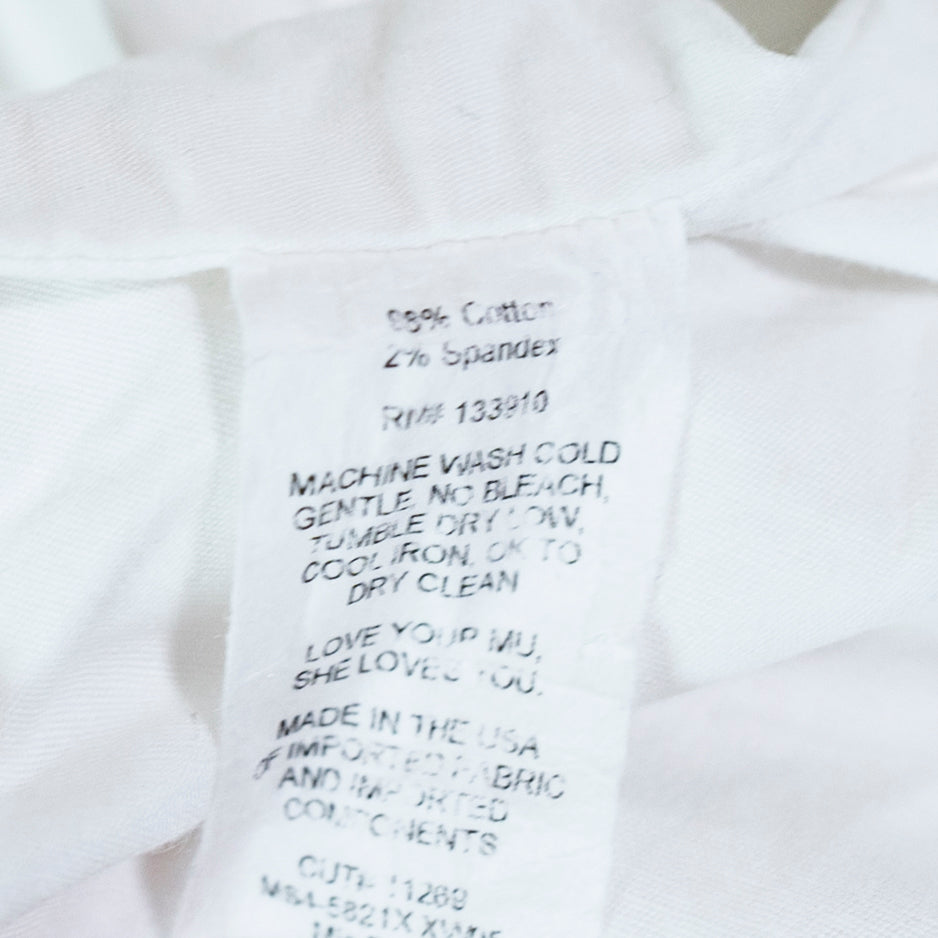 98% Cotton
2% Spandex
RN# 133910
MACHINE WASH COLD
GENTLE, NO BLEACH,
TUMBLE DRY LOW,
COOL IRON, OK TO
DRY CLEAN
LOVE YOUR MU,
SHE LOVES YOU.
MADE IN THE USA
OF IMPORTED FABRIC
AND IMPORTED
COMPONENTS
CUT# 11269